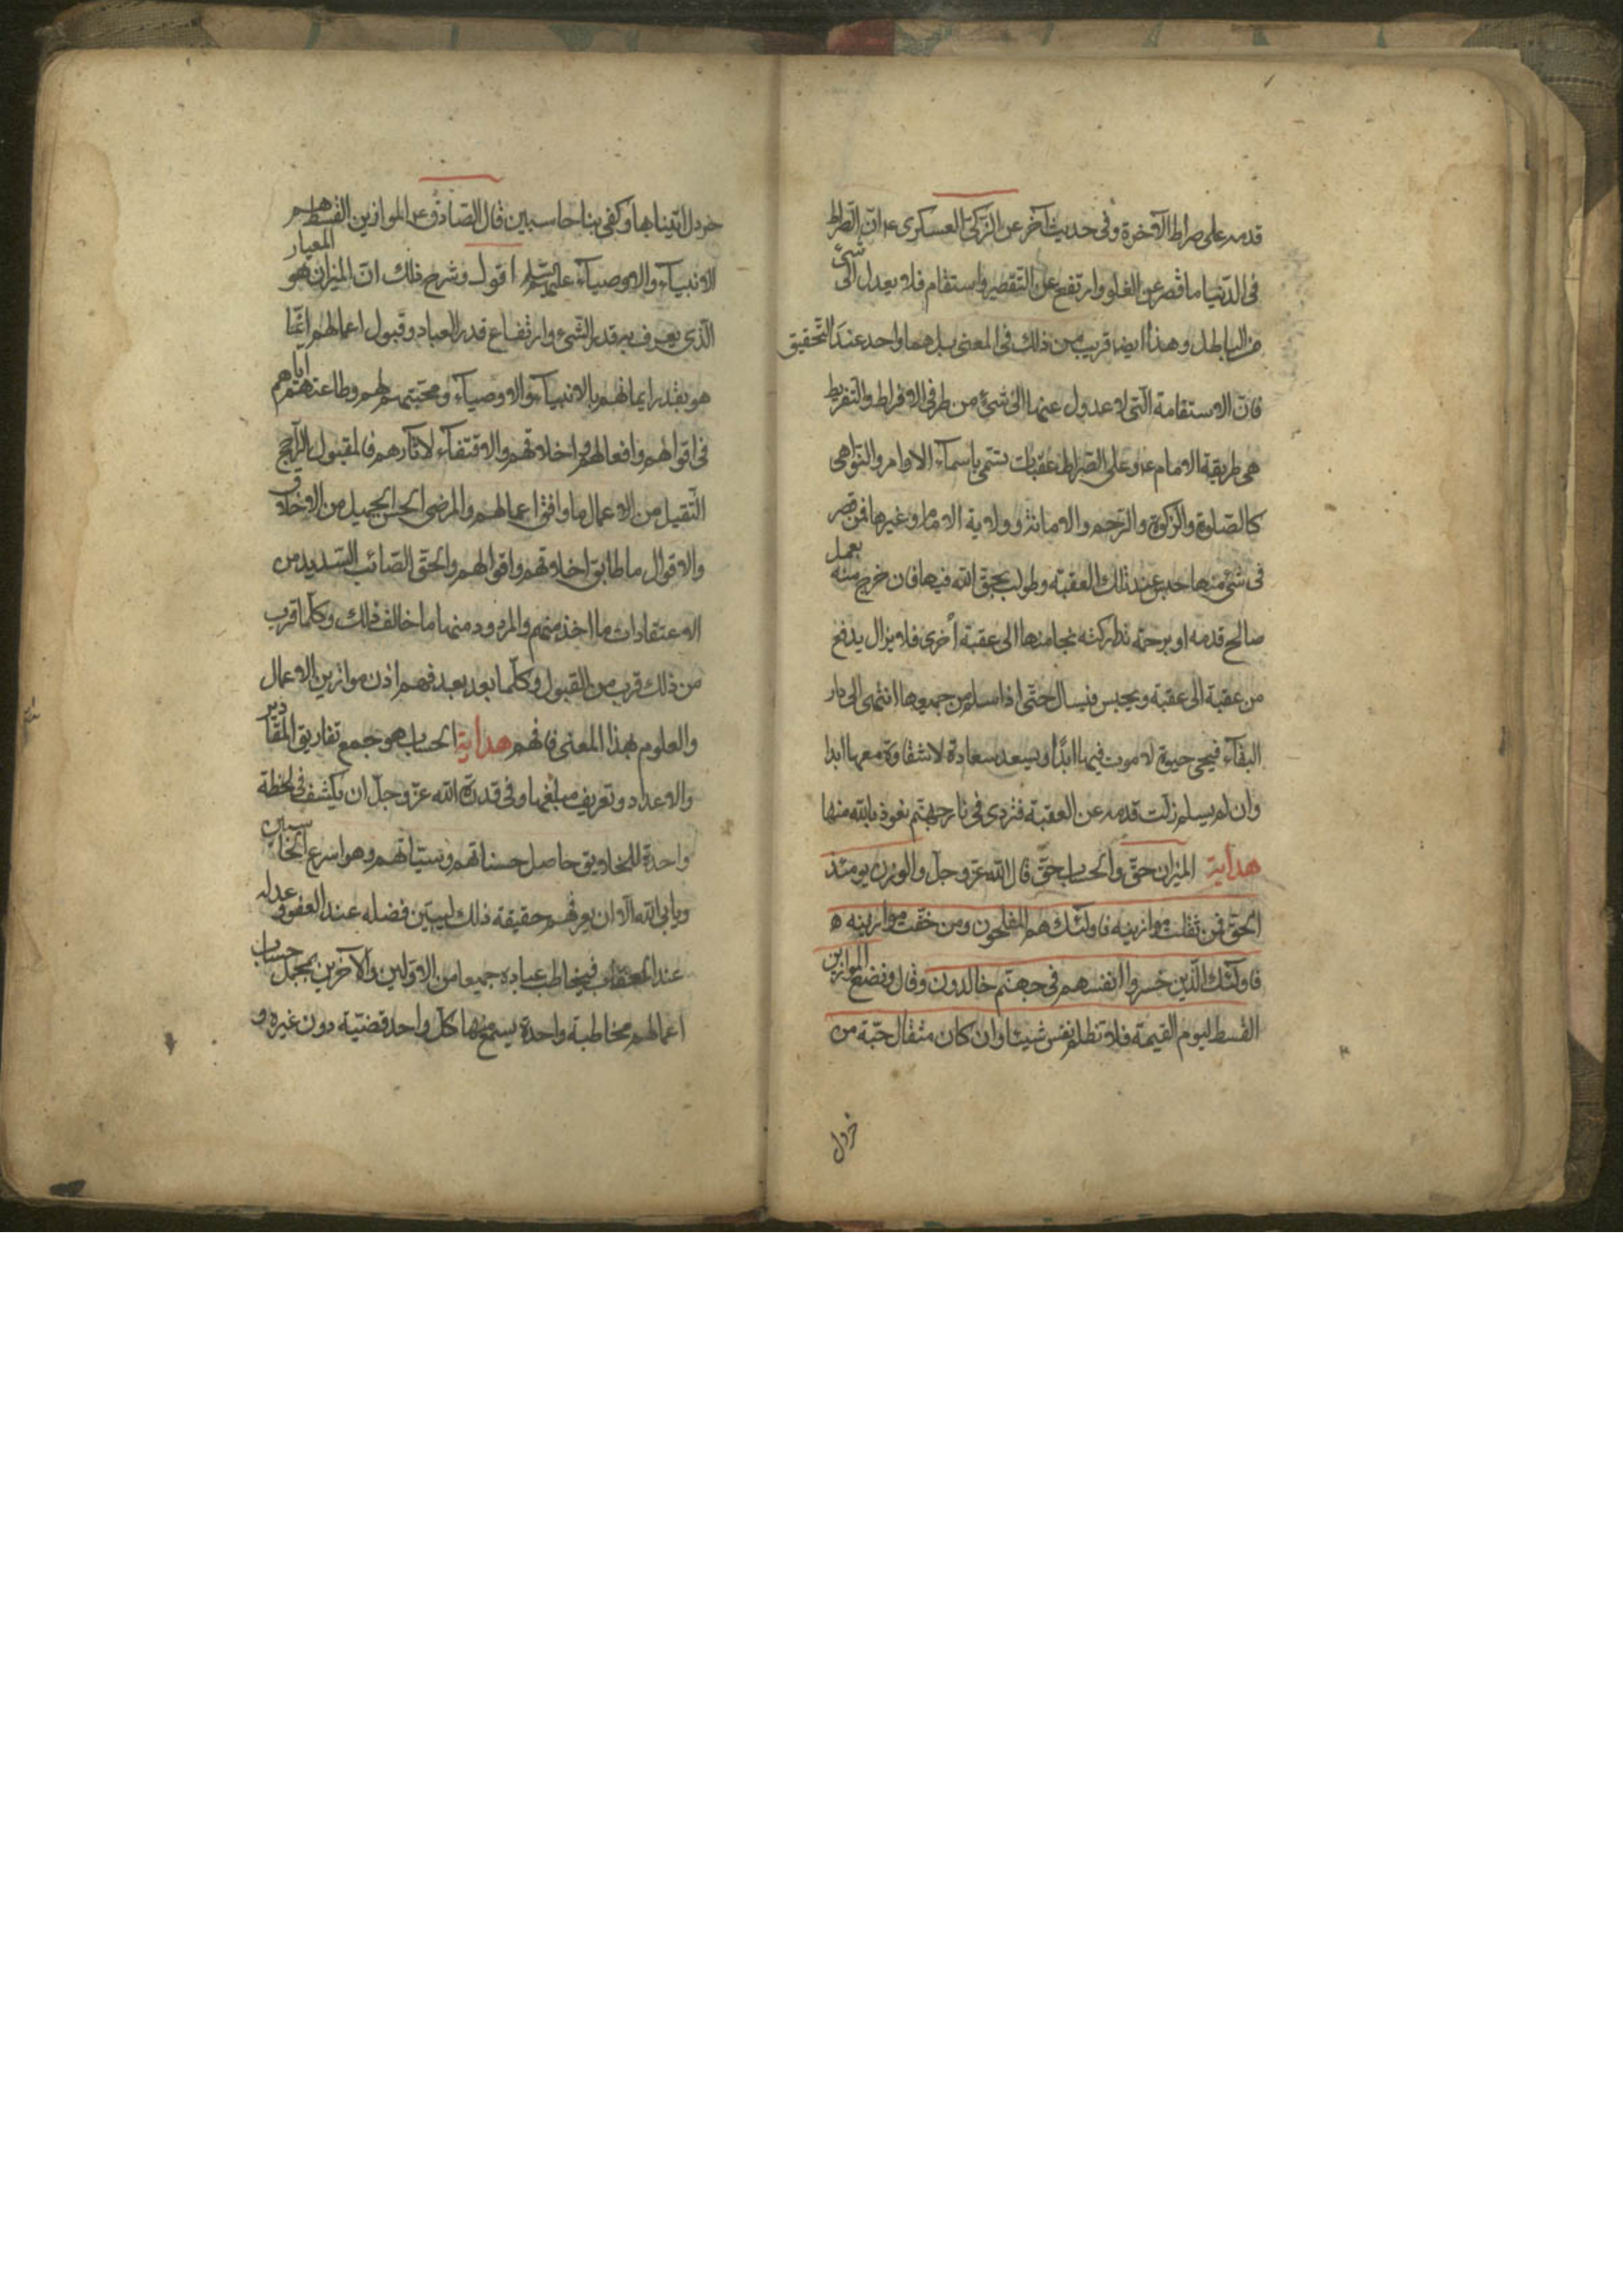 قدمه على صراط الآخرة وفى حديث آخر عن الزكىّ العسكرى ع انّ الصّراط
فى الدّنيا ما قصر عن الغلو وارتفع عن التّقصير واستقام فلا يعدل الى شئ
من الباطل وهذا ايضا قريب من ذلك فى المعنى بل هما واحد عند التّحقيق
فانّ الاستقامة الّتى لا عدول عنها الى شئ من طرفى الافراط والتفريط
هى طريقة الامام ع وعلى الصّراط عقبات تسمّى باسمآء الاوامر والنّواهى
كالصّلوة والزّكوة والرّحم والامانة وولاية الامام وغيرها فمن قصر
فى شئ منها حبس عند تلك العقبة وطولب بحقّ الله فيها فان خرج منه بعمل
صالح قدمه او برحمة تداركته نجا منها الى عقبة أخرى فلا يزال يدفع
من عقبة الى عقبة ويحبس فيسال حتّى اذا سلم من جميعها انتهى الى دار
البقآء فيحيى حيوة لا موت فيها ابدًا ويسعد سعادة لا شقاوة معها ابدا
وان لم يسلم زلّت قدمه عن العقبة فتردى فى نار جهنّم نعوذ بالله منها
هداية الميزان حقّ والحساب حقّ قال الله عزّ وجلّ والوزن يومئذ
الحقّ فمن ثقلت موازينه فاولئك هم المفلحون ومن خفّت موازينه ه
فاولئك الّذين خسروا انفسهم فى جهنّم خالدون وقال ونضع الموازين
القسط ليوم القيمة فلا تظلم نفس شيئا وان كان مثقال حبّة من
خردل
خردل اتينا بها وكفى بنا حاسبين قال الصّادق ع الموازين القسط هم
الانبيآء والاوصيآء عليهم السّلم اقول وشرح ذلك انّ الميزان هو المعيار
الّذى يعرف به قدر الشّئ وارتفاع قدر العباد وقبول اعمالهم انّما
هو بقدر ايمانهم بالانبيآء والاوصيآء ومحبّتهم لهم وطاعتهم ايّاهم
فى اقوالهم وافعالهم واخلاقهم والاقتفآء لآثارهم فالمقبول الرّاجح
الثّقيل من الاعمال ما وافق اعمالهم والمرضى الحسن الجميل من الاخلاق
والاقوال ما طابق اخلاقهم واقوالهم والحقّ الصّائب السّديد من
الاعتقادات ما اخذ منهم والمردود منها ما خالف ذلك وكلّما قرب
من ذلك قرب من القبول وكلّما بعد بعد فهم اذن موازين الاعمال
والعلوم بهذا المعنى فافهم هداية الحساب هو جمع تفاريق المقادير
والاعداد وتعريف مبلغها وفى قدرة الله عزّ وجلّ ان يكشف فى لحظة
واحدة للخلايق حاصل حسناتهم وسيّاتهم وهو اسرع الحاسبين
ويابى الله الّا ان يعرفهم حقيقة ذلك ليبيّن فضله عند العفو وعدله
عند العقاب فيخاطب عباده جميعا من الاوّلين والآخرين بمجمل حساب
اعمالهم مخاطبة واحدة يسمع بها كلّ واحد قضيّته دون غيره و